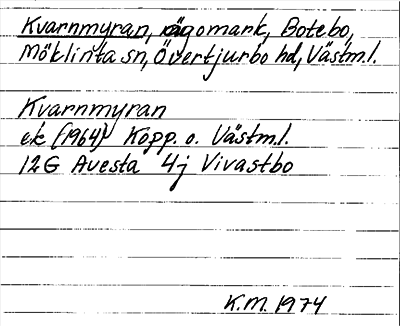 Kvarnmyran, ägomark, Botebo,
Möklinta sn, Övertjurbo hd, Västm.l.
Kvarnmyran
ek (1964) Kopp. o. Västm.l.
12G Avesta 4j Vivastbo
K.M. 1974